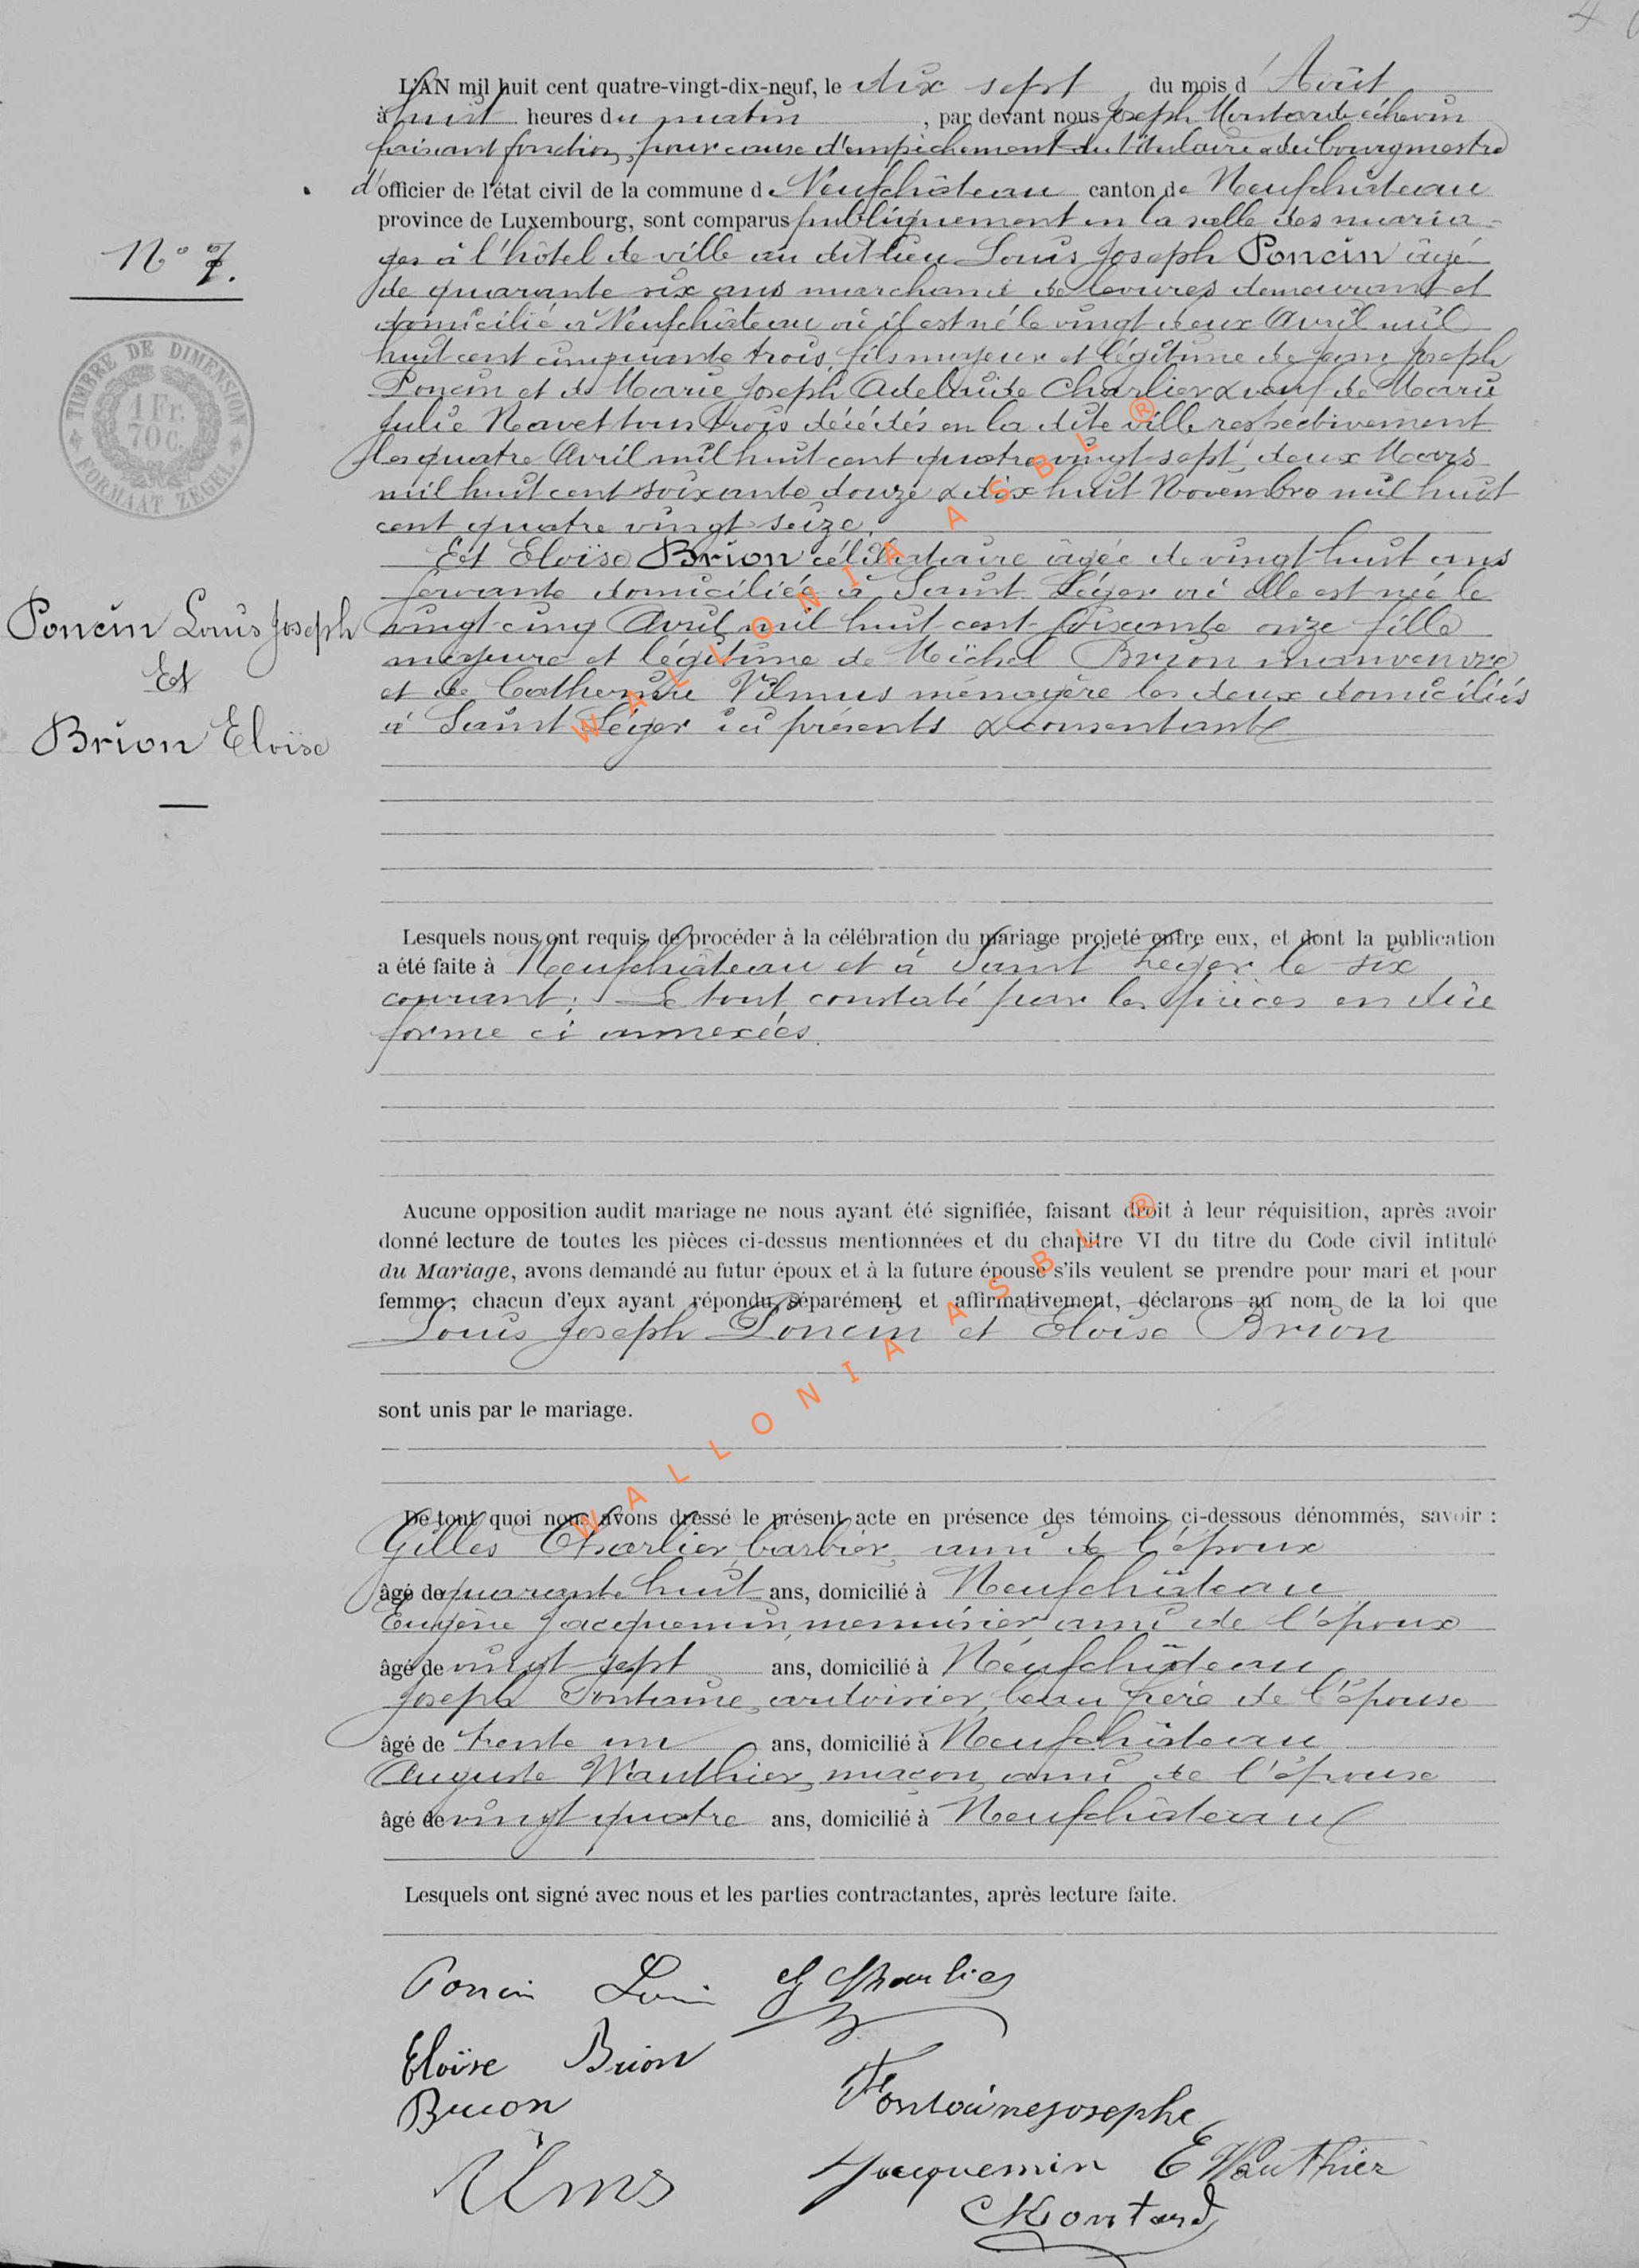 L'AN mil huit cent quatre-vingt-dix-neuf, le dix sept du mois d'Août
à huit heures du matin, par devant nous Joseph échevin
faisant fonction, pour cause d'empêchement du titulaire & du bourgmestre
d'officier de l'état civil de la commune de Neufchâteau canton de Neufchâteau
province de Luxembourg, sont comparus publiquement en la salle des maria-
ges à l'hôtel de ville au dit lieu Louis Joseph Poncin âgé
de quarante six ans marchand de levures demeurant et
domicilié à Neufchâteau où il est né le vingt deux Avril mil
huit cent cinquante trois, fils majeur et légitime de Jean Joseph
Poncin et de Marie Joseph Adelaïde Charlier & veuf de Marie
Julie Navet tous trois décédés en la dite ville respectivement
les quatre Avril mil huit cent quatre vingt sept, deux Mars
mil huit cent soixante douze & dix huit Novembre mil huit
cent quatre vingt seize.
Et Eloïse Brion célibataire âgée de vingt huit ans
servante domiciliée à Saint Léger où elle est née le
vingt-cinq Avril mil huit cent soixante onze fille
majeure et légitime de Michel Brion manœuvre
et de Catherine Vilmus ménagère les deux domiciliés
à Saint Léger ici présents & consentants
N° 7.
TIMBRE DE DIMENSION
1 Fr.
70 C.
FORMAAT ZEGEL
Poncin Louis Joseph
Et
Brion Eloïse
Lesquels nous ont requis de procéder à la célébration du mariage projeté entre eux, et dont la publication
a été faite à Neufchâteau et à Saint Léger le six
courant; Le tout constaté par les pièces en due
forme ci annexées.
Aucune opposition audit mariage ne nous ayant été signifiée, faisant droit à leur réquisition, après avoir
donné lecture de toutes les pièces ci-dessus mentionnées et du chapitre VI du titre du Code civil intitulé
du Mariage, avons demandé au futur époux et à la future épouse s'ils veulent se prendre pour mari et pour
femme; chacun d'eux ayant répondu séparément et affirmativement, déclarons au nom de la loi que
Louis Joseph Poncin et Eloïse Brion
sont unis par le mariage.
De tout quoi nous avons dressé le présent acte en présence des témoins ci-dessous dénommés, savoir :
Gilles Charlier, barbier, ami de l'époux
âgé de quarante huit ans, domicilié à Neufchâteau
Eugène Jacquemin, menuisier ami de l'époux
âgé de vingt sept ans, domicilié à Neufchâteau
Joseph Fontaine, ardoisier, beau frère de l'épouse
âgé de trente un ans, domicilié à Neufchâteau
Auguste Wauthier, maçon, ami de l'épouse
âgé de vingt quatre ans, domicilié à Neufchâteau
Lesquels ont signé avec nous et les parties contractantes, après lecture faite.
Poncin Louis G Charlier
Eloïse Brion
Brion Fontaine Josephe
Jacquemin E Wauthier
WALLONIA ASBL ®
WALLONIA ASBL ®